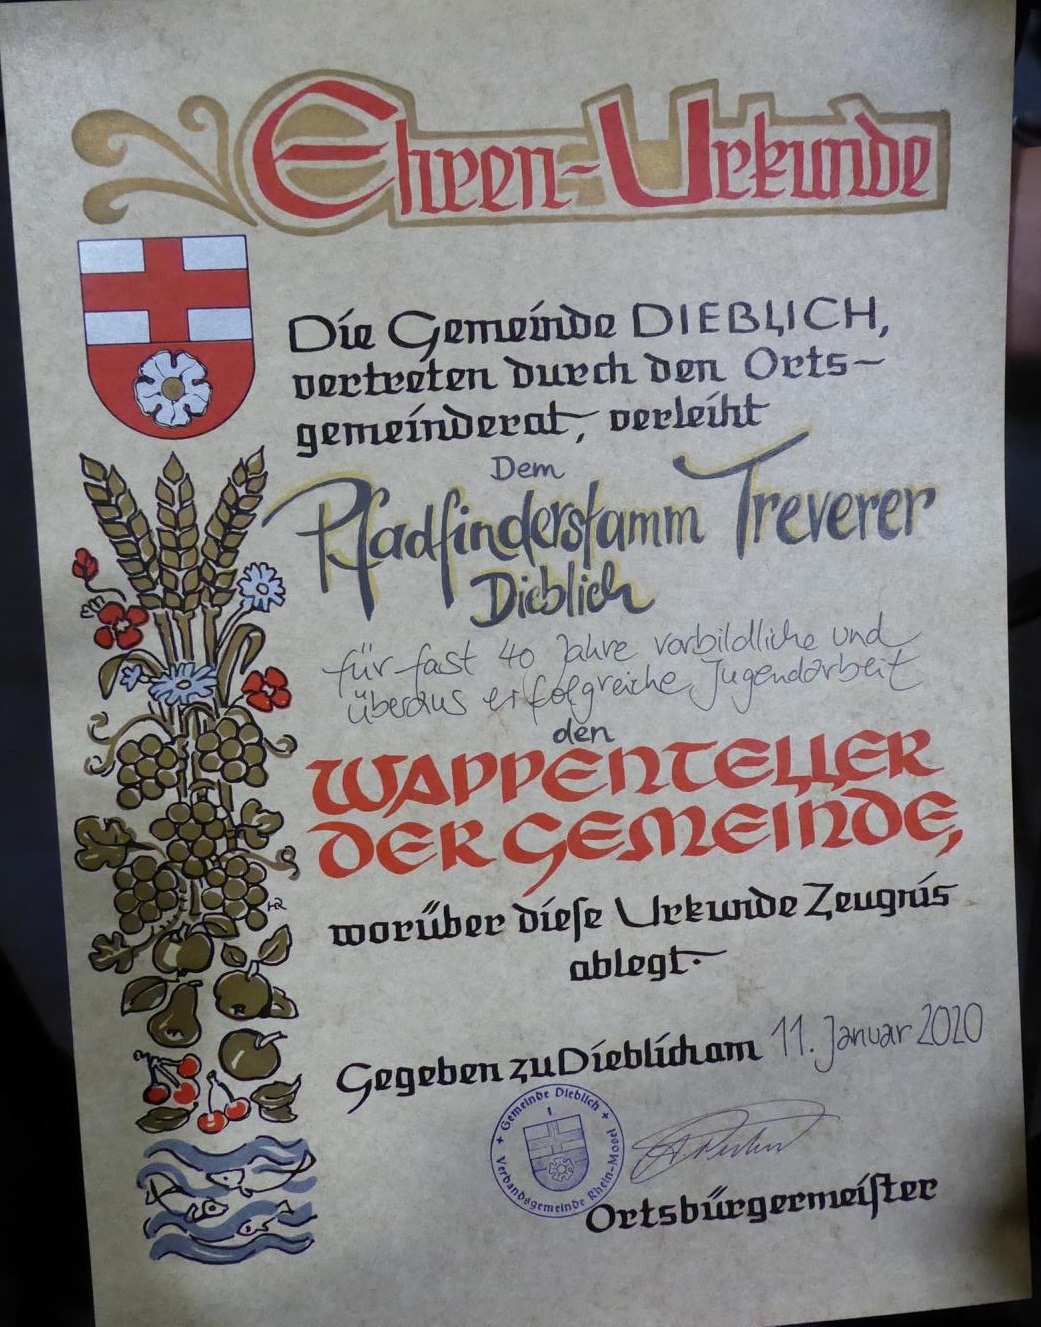 Ehren-Urkunde
Die Gemeinde DIEBLICH,
vertreten durch den Orts-
gemeinderat, verleiht
Dem
Pfadfinderstamm Treverer
Dieblich
für fast 40 Jahre vorbildliche und
überaus erfolgreiche Jugendarbeit
den
WAPPENTELLER
DER GEMEINDE,
HR
worüber dieſe Urkunde Zeugnis
ablegt.
Gegeben zu Dieblich am 11. Januar 2020
Gemeinde Dieblich
Verbandsgemeinde Rhein-Mosel
Ortsbürgermeiſter